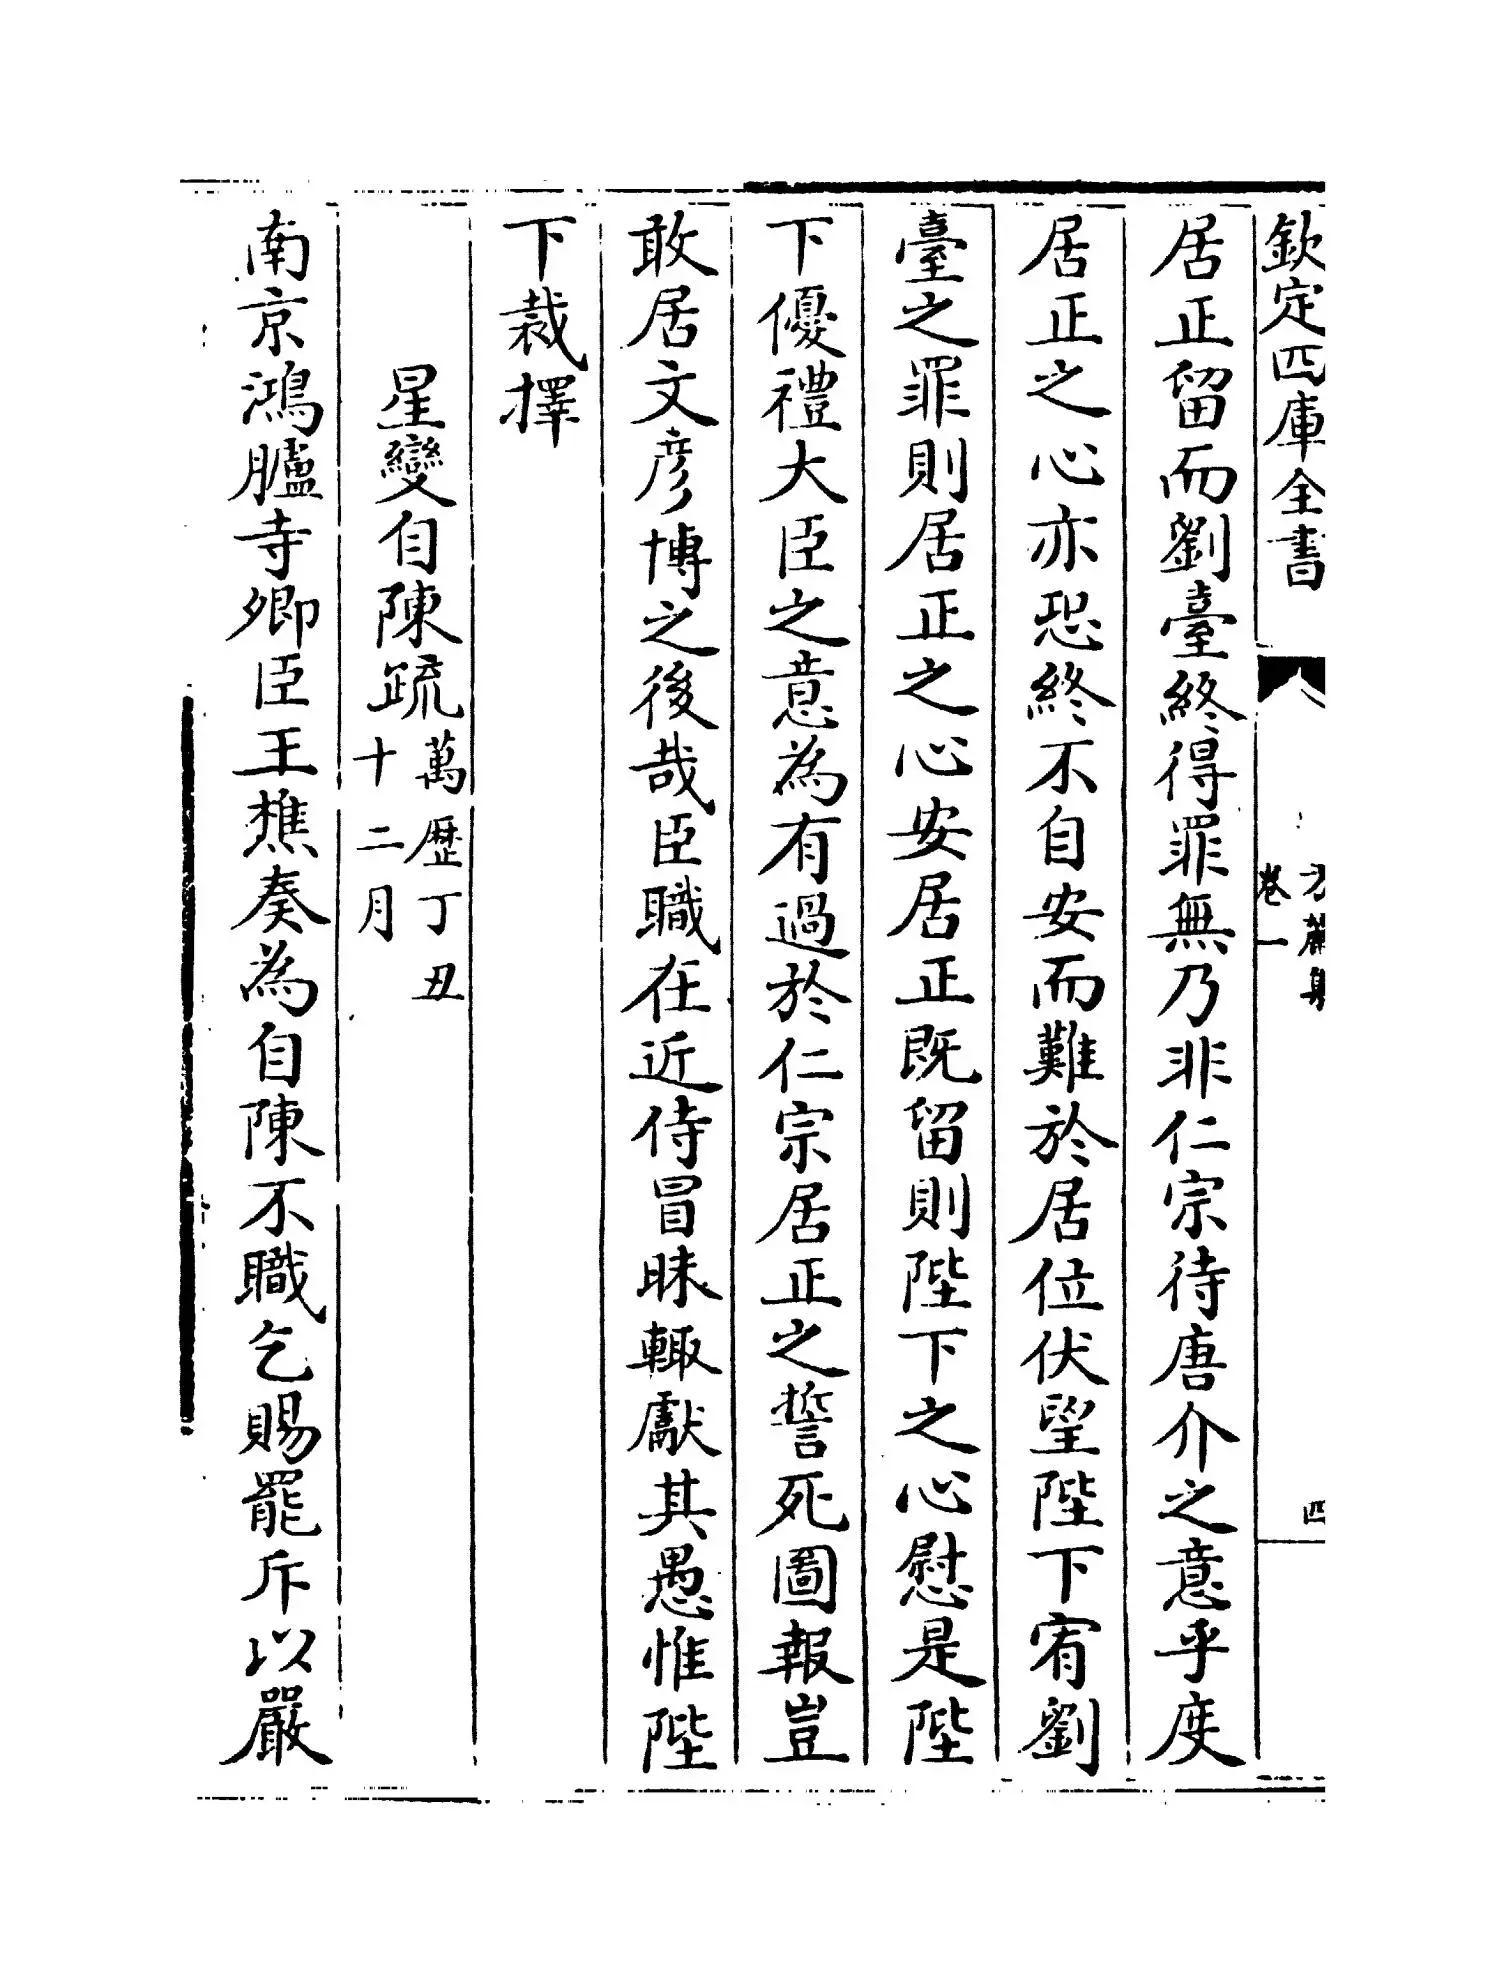 欽定四庫全書
卷一
四
居正留而劉臺終得罪無乃非仁宗待唐介之意乎度
居正之心亦恐終不自安而難於居位伏望陛下宥劉
臺之罪則居正之心安居正既留則陛下之心慰是陛
下優禮大臣之意為有過於仁宗居正之誓死圖報豈
敢居文彥博之後哉臣職在近侍冒昧輙獻其愚惟陛
下裁擇
星變自陳疏萬歷丁丑十二月
南京鴻臚寺卿臣王樵奏為自陳不職乞賜罷斥以嚴